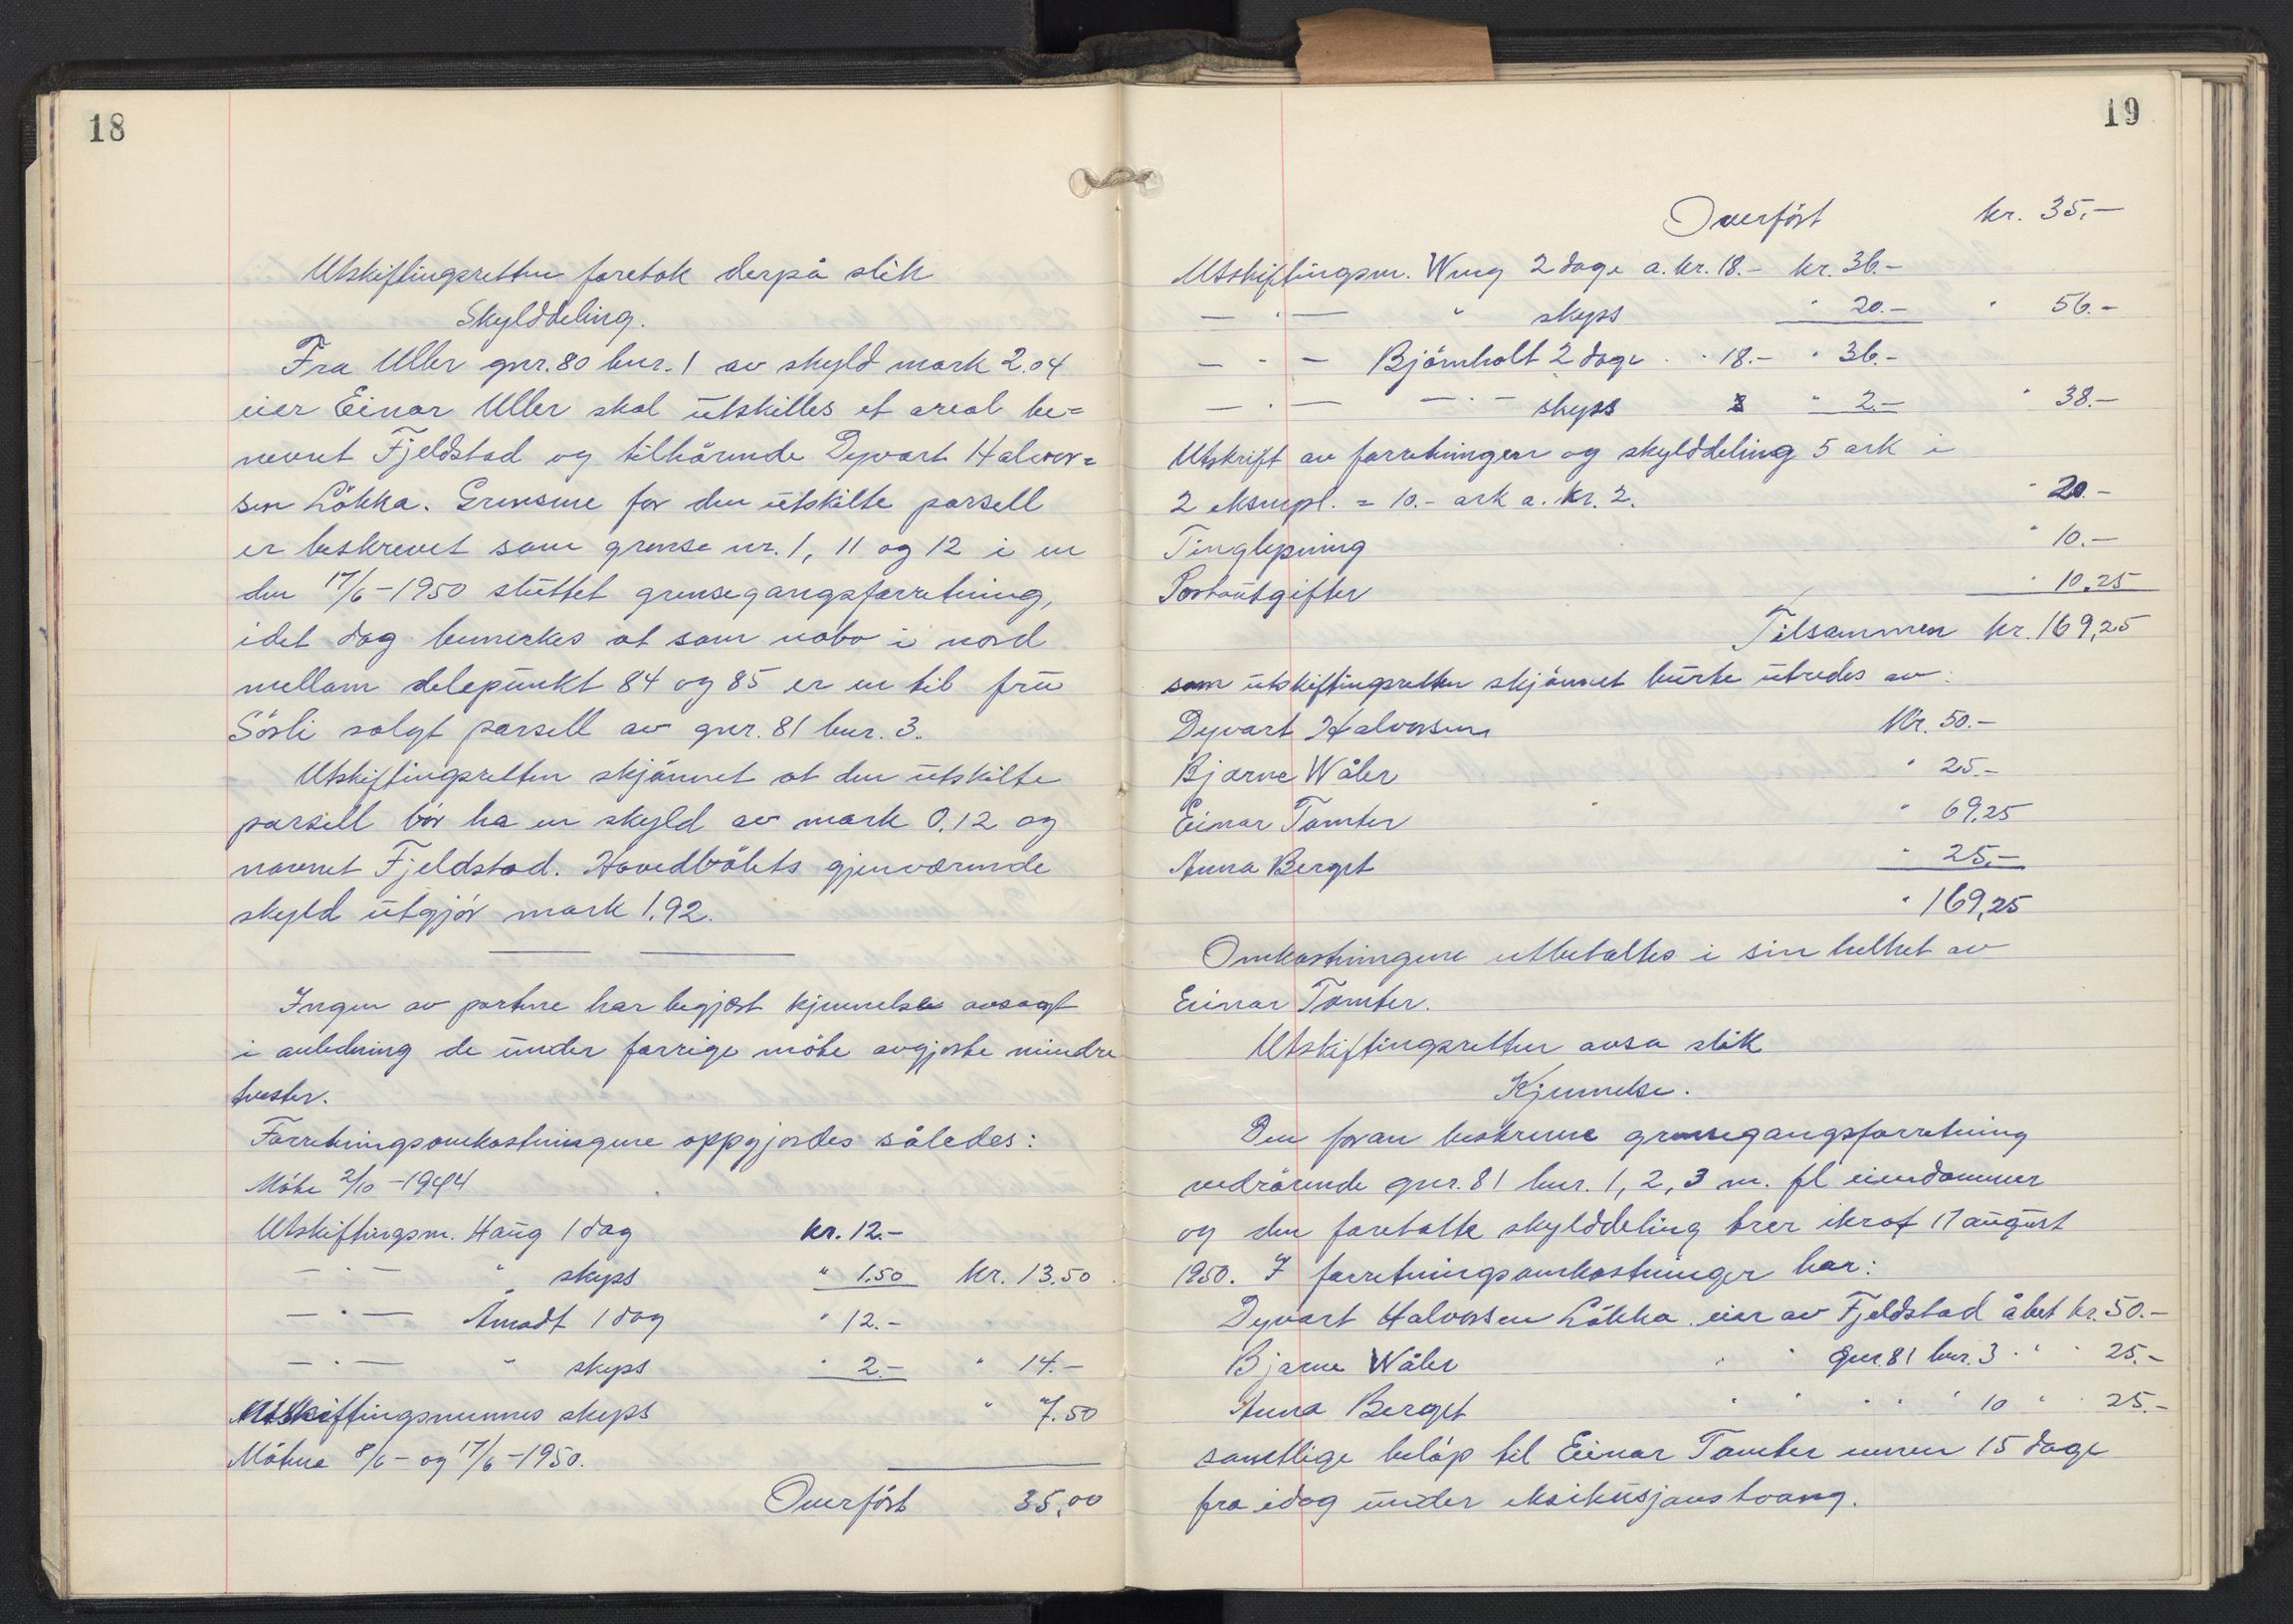 18
Utskiftingsretten foretok derpå slik
Skylddeling.
Fra Uller gnr. 80 bnr. 1 av skyld mark 2.04
eier Einar Uller skal utskilles et areal be=
nevnt Fjeldstad og tilhørende Dyvart Halvor=
sen Løkka. Grensene for den utskilte parsell
er beskrevet som grense nr. 1, 11 og 12 i en
den 17/6-1950 sluttet grensegangsforretning,
idet dog bemerkes at som nabo i nord
mellom delepunkt 84 og 85 er en til fru
Sörli solgt parsell av gnr. 81 bnr. 3.
Utskiftingsretten skjønnet at den utskilte
parsell bör ha en skyld av mark 0.12 og
navnet Fjeldstad. Hovedbölets gjenværende
skyld utgjör mark 1.92.
Ingen av partene har begjært kjennelse avsagt
i anledning de under forrige möte avgjorte mindre
tvester.
Forretningsomkostningene oppgjordes således:
Möte 2/10-1944
Utskiftingsm. Haug 1 dag kr. 12.-
— " — " skyss " 1.50 kr. 13.50
— " — Amodt 1 dag " 12.-
— " — " skyss " 2.- " 14.-
Utskiftingsmennes skyss " 7.50
Mötene 8/6- og 17/6-1950.
Overfört 35,00
19
Overfört kr. 35,-
Utskiftingsm. Wung 2 dage a. kr. 18.- kr. 36.-
— " — " skyss " 20.- " 56.-
— " — Björnholt 2 dage " " 18.- " 36.-
— " — — " — skyss " 2.- " 38.-
Utskrift av forretningen og skylddeling 5 ark i
2 eksmpl. = 10.- ark a. kr. 2. " 20.-
Tinglysning " 10.-
Portoutgifter " 10.25
Tilsammen kr. 169,25
som utskiftingsretten skjönnet burte utredes av:
Dyvart Halvorsen Kr. 50.-
Bjarne Wåler " 25.-
Einar Tomter " 69.25
Anna Berget " 25.-
" 169,25
Omkostningene utbetaltes i sin helhet av
Einar Tomter.
Utskiftingsretten avsa slik
Kjennelse.
Den foran beskrevne grensegangsforretning
vedrörende gnr. 81 bnr. 1, 2, 3 m. fl eiendommer
og den foretatte skylddeling trer ikraf 17 august
1950. I forretningsomkostninger har:
Dyvart Halvorsen Løkka eier av Fjeldstad å bet kr. 50.-
Bjarne Wåler " " gnr. 81 bnr. 3 " " " 25.-
Anna Berget " " " " " 10 " " 25.-
samtlige beløp til Einar Tomter innen 15 dage
fra idag under eksikusjonstvang.